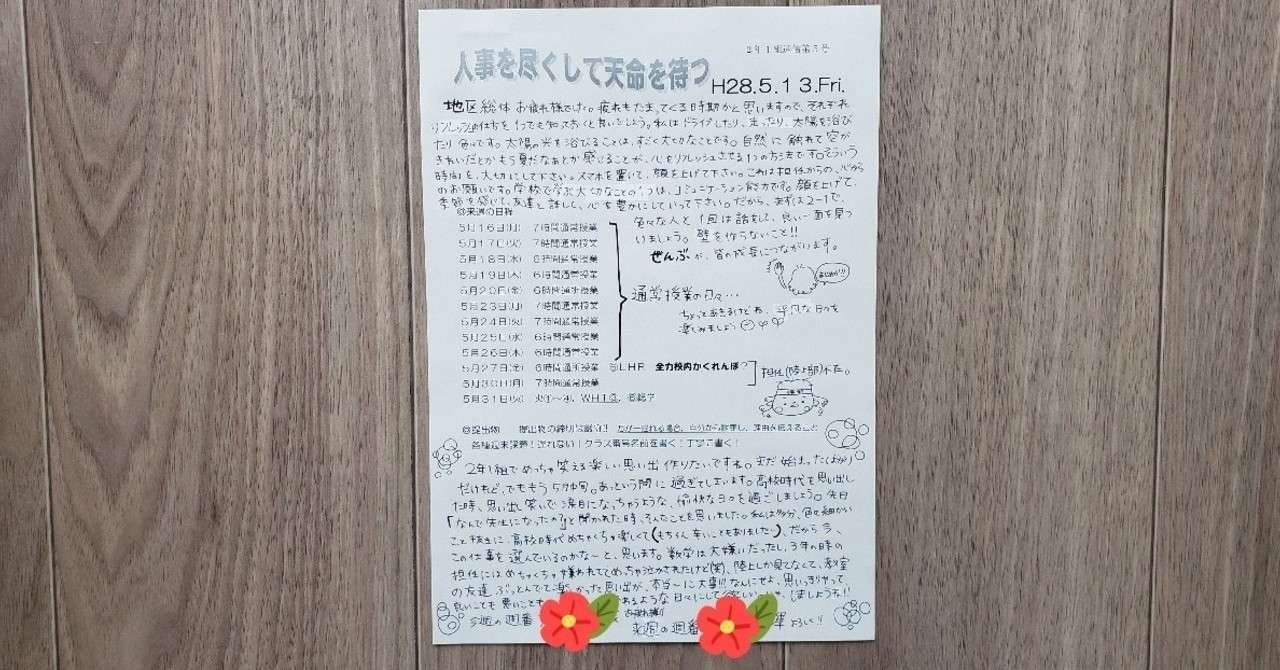 2年1組通信第5号
人事を尽くして天命を待つ
H28.5.13.Fri.
地区総体お疲れ様でした。疲れもたまってくる時期かと思いますので、それぞれ
リフレッシュの仕方を1つでも知っておくと良いでしょう。私はドライブしたり、走ったり、太陽を浴び
たり色々です。太陽の光を浴びることは、すごく大切なことです。自然に触れて空が
きれいだとかもう夏だなぁとか感じることが、心をリフレッシュさせる1つの方法です。そういう
時間を、大切にして下さい。スマホを置いて、顔を上げて下さい。これは担任からの、心から
のお願いです。学校で学ぶ大切なことの1つは、コミュニケーション能力です。顔を上げて、
季節を感じて、友達と話して、心を豊かにしていって下さい。だから、まずは2-1で、
色々な人と1回は話をして、良い一面を見つ
けましょう。壁を作らないこと!!
ぜんぶが、皆の成長につながります。
◎来週の日程
5月16日(月) 7時間通常授業
5月17日(火) 7時間通常授業
5月18日(水) 6時間通常授業
5月19日(木) 6時間通常授業
5月20日(金) 6時間通常授業
5月23日(月) 7時間通常授業
5月24日(火) 7時間通常授業
5月25日(水) 6時間通常授業
5月26日(木) 6時間通常授業
5月27日(金) 6時間通常授業 ◎LHR 全力校内かくれんぼ?
5月30日(月) 7時間通常授業
5月31日(火) 火①~④,
通常授業の日々…
ちょっとあきるけどね、平凡な日々を
楽しみましょう
担任(陸上部)
◎提出物 提出物の締切は厳守!!
クラス番号名前を書く!丁寧に書く!
2年1組でめっちゃ笑える楽しい思い出作りたいですね。まだ始まった(ばかり)
だけれど、でももう5月中旬。あっという間に過ぎてしまいます。高校時代を思い出し
た時、思い出し笑いで涙目になっちゃうような、愉快な日々を過ごしましょう。先日
「なんで先生になったの?」と聞かれた時、そんなことを思いました。私は多分、色々細かい
こと抜きに高校時代めちゃくちゃ楽しくて(もちろん辛いこともありました…)、だから今、
この仕事を選んでいるのかな~と、思います。数学は大嫌いだったし、3年の時の
担任にはめちゃくちゃ嫌われててめっちゃ泣かされたけど(笑)、陸上しか見てなくて、教室
の友達、ぶっとんでて楽しかった思い出が、本当~に大事!!なんにせよ、思いっきりやって、
良いことも悪いことも あるような日々にして
しましょうね!!
今週の週番
来週の週番
よろしく!!